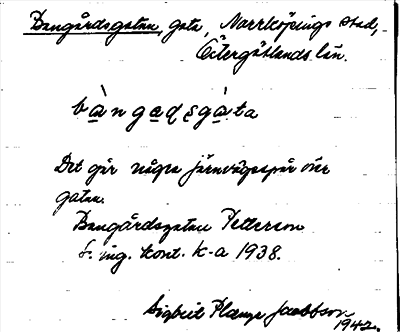 Bangårdsgatan, gata, Norrköpings stad,
Östergötlands län.
bàngạḍṣgàta
Det går några järnvägsspår över
gatan.
Bangårdsgatan Petterson
f. ing. kont. k-a 1938.
Sigbrit Plænge Jacobson
1942.